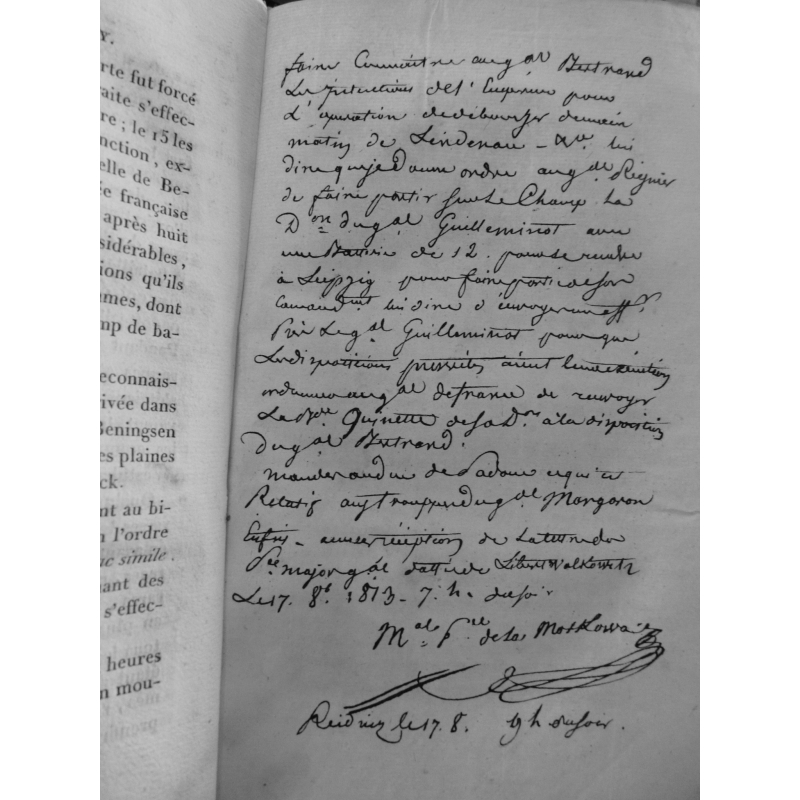 Y.
rte fut forcé
aite s'effec-
re ; le 15 les
nction, ex-
elle de Be-
e française
après huit
sidérables,
ions qu'ils
mes, dont
mp de ba-
econnais-
rivée dans
Beningsen
es plaines
ck.
nt au bi-
n l'ordre
ac simile.
uant des
s'effec-
heures
n mou-
faire Connoitre au g.al Bertrand
Les instructions de l'Empereur pour
L'opération de déboucher demain
matin de Lindenau - lui
dire que je Donne ordre au g.al Regnier
de faire partir sur Le Champ La
D.on du g.al Guilleminot avec
une Batterie de 12 pour se rendre
à Leipzig pour faire partie de son
Command.mt lui dire d'envoyer un off.r
Près Le g.al Guilleminot pour que
Les dispositions prescrites aient leur exécution
ordonner au g.al de france de renvoyer
La B.de Quinette de sa D.on à la disposition
Du g.al Bertrand.
mander au duc de Padoue ce qui est
Relatif aux trouppes du g.al Margaron
Enfin - accuser réception de La Lettre du
P.ce major g.al dattée de Libertwolkowitz
Le 17. 8.b 1813 - 7. h. du soir
M.al P.ce de La Moskowa
Reidniz le 17. 8. 9 h du soir.